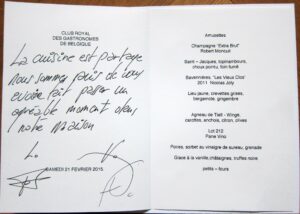 CLUB ROYAL
DES GASTRONOMES
DE BELGIQUE
La cuisine est partage
nous sommes de vous
fait passer un
agréable moment dans
notre Maison
SAMEDI 21 FEVRIER 2015
Amusettes
Champagne "Extra Brut"
Robert Moncuit
Saint – Jacques, topinambours,
choux pointu, foin fumé
Savennières, "Les Vieux Clos"
2011 Nicolas Joly
Lieu jaune, crevettes grises,
bergamote, gingembre
Agneau de Taill - Wingé,
carottes, anchois, citron, olives
Lot 212
Pane Vino
Poires, sorbet au vinaigre de sureau, grenade
Glace à la vanille, châtaignes, truffes noire
petits – fours